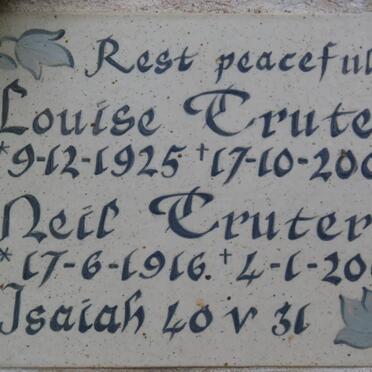 Rest peaceful
Louise Truter
*9-12-1925 †17-10-200
Neil Truter
* 17-6-1916. † 4-1-200
Isaiah 40 v 31